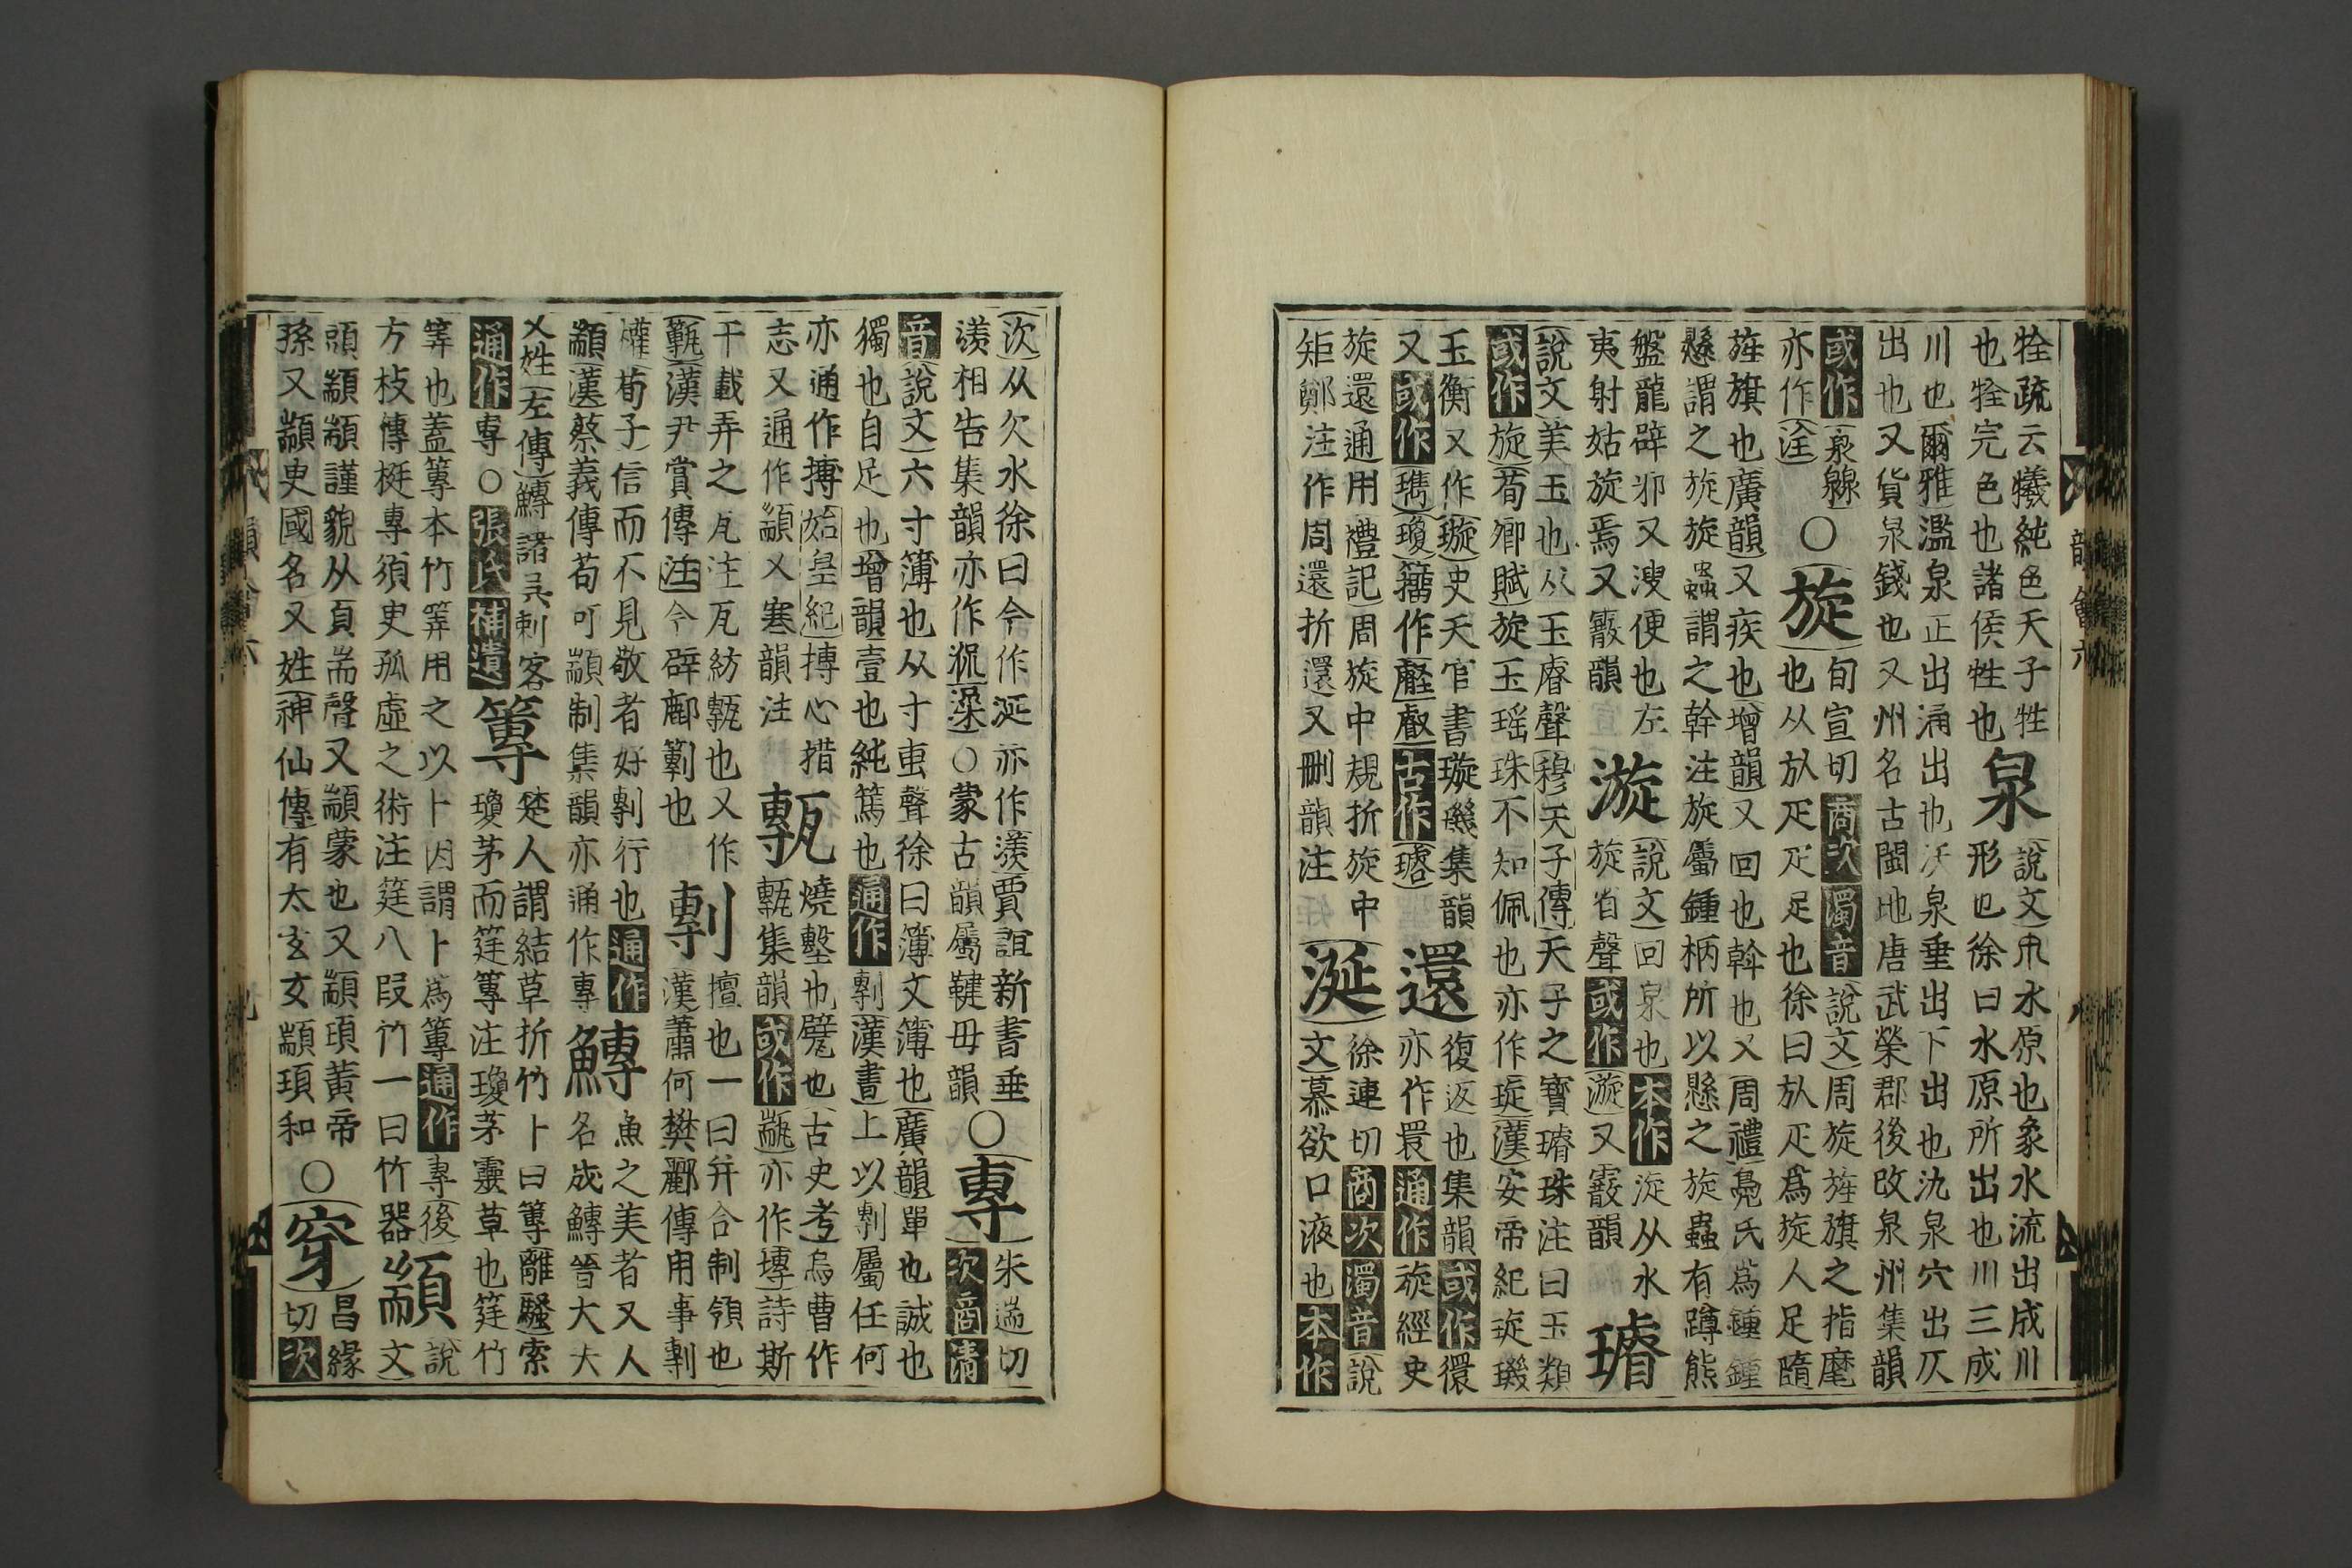 牷疏云犧純色天子牲
也牷完色也諸侯牲也
泉
說文
水原也象水流出成川
形
徐曰水原所出也川三成
川也爾雅濫泉正出涌出也沃泉垂出下出也氿泉穴出仄
出也又貨泉錢也又州名古閩地唐武榮郡後改泉州集韻
或作
亦作
○
旋
旬宣切商次濁音說文周旋旌旗之指麾
也从㫃疋疋足也徐曰㫃疋爲旋人足隨
旌旗也廣韻又疾也增韻又回也斡也又周禮鳧氏爲鍾鍾
懸謂之旋旋蟲謂之幹注旋屬鍾柄所以懸之旋蟲有蹲熊
盤龍辟邪又溲便也左
夷射姑旋焉又霰韻
漩
說文回泉也本作淀从水
旋省聲或作漩又霰韻
璿
說文美玉也从玉睿聲穆天子傳天子之寶璿珠注曰玉類
或作旋荀卿賦旋玉瑤珠不知佩也亦作琁漢安帝紀琁璣
玉衡又作璇史天官書璇璣集韻
又或作瓊籀作叡古作璿
還
復返也集韻或作儇
亦作睘通作旋經史
旋還通用禮記周旋中規折旋中
矩鄭注作周還折還又刪韻注
涎
徐連切商次濁音說
文慕欲口液也本作
㳄从欠水徐曰今作涎亦作羨賈誼新書垂
羨相告集韻亦作㳄○蒙古韻屬鞬毋韻
○
專
朱遄切
次商清
音說文六寸簿也从寸叀聲徐曰簿文簿也廣韻單也誠也
獨也自足也增韻壹也純篤也通作剸漢書上以剸屬任何
亦通作摶始皇紀摶心揖
志又通作顓又寒韻注
甎
燒墼也甓也古史考烏曹作
甎集韻或作 亦作塼詩斯
干載弄之瓦注瓦紡甎也又作
甎漢尹賞傳注令辟鄜劉也
剸
擅也一曰并合制領也
漢蕭何樊酈傳用事剸
權荀子信而不見敬者好剸行也通作
顓漢蔡義傳苟可顓制集韻亦通作專
鱄
魚之美者又人
名成鱄晉大夫
又姓左傳鱄諸吳刺客
通作專○張氏補遺
篿
楚人謂結草折竹卜曰篿離騷索
瓊茅而筳篿注瓊茅靈草也筳竹
筭也蓋篿本竹筭用之以卜因謂卜爲篿通作專後
方枝傳挺專須史孤虛之術注筳八段竹一曰竹器
顓
說
文
頭顓顓謹貌从頁耑聲又顓蒙也又顓頊黃帝
孫又顓臾國名又姓神仙傳有太玄女顓頊和
○
穿
昌緣
切次